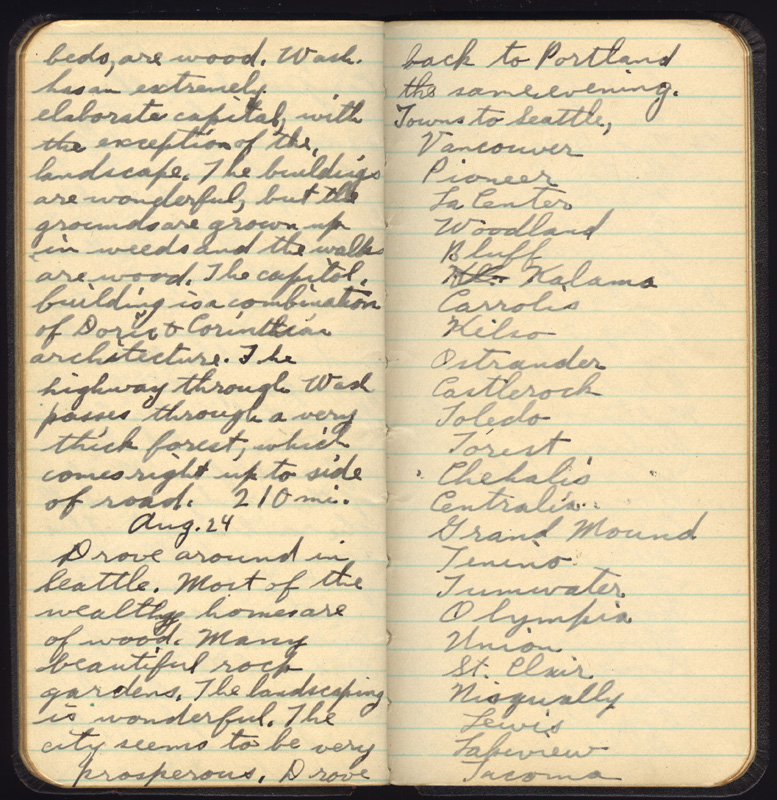 beds, are wood. Wash.
has an extremely
elaborate capital, with
the exception of the,
landscape. The buildings
are wonderful, but the
grounds are grown up
in weeds and the walks
are wood. The capitol.
building is a combination
of Doric & Corinthian
architecture. The
highway through Wash
passes through a very
thick forest, which
comes right up to side
of road. 210 mi.
Aug. 24
Drove around in
Seattle. Most of the
wealthy homes are
of wood. Many
beautiful rock
gardens. The landscaping
is wonderful. The
city seems to be very
prosperous. Drove
back to Portland
the same evening.
Towns to Seattle,
Vancouver
Pioneer
La Center
Woodland
Bluff
Kalama
Carrolls
Kelso
Ostrander
Castlerock
Toledo
Forest
Chehalis
Centralia
Grand Mound
Tenino
Tumwater
Olympia
Union
St. Clair
Nisqually
Lewis
Lakeview
Tacoma